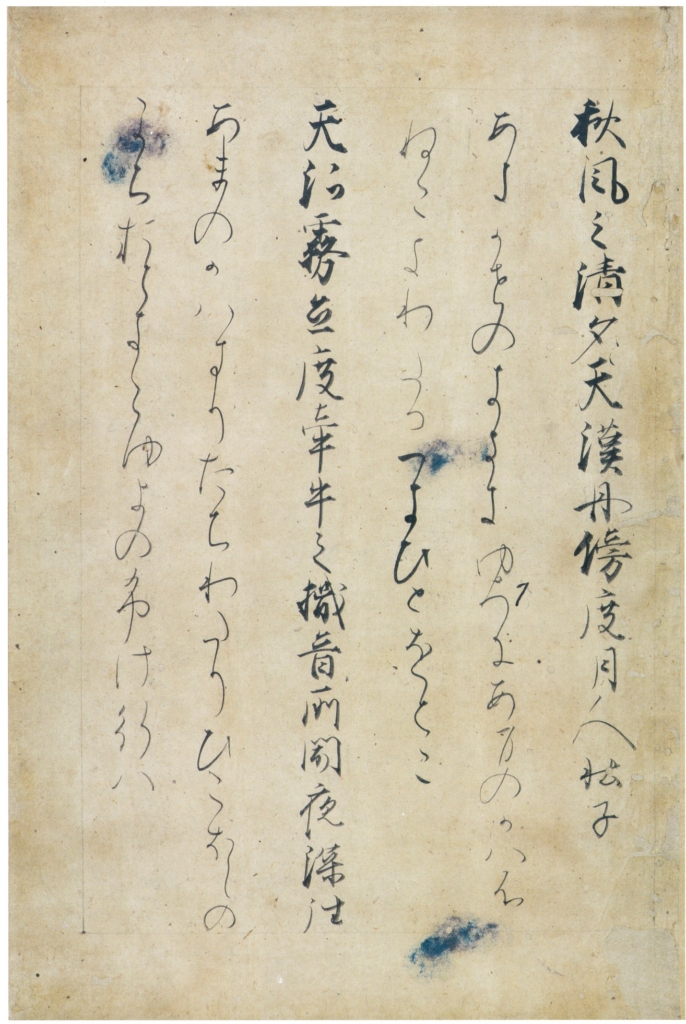 秋風之清夕天漢舟傍度月人壮子
あきかせのきよきゆふへにあまのかはふ
ねこきわたるつきひとをとこ
天河霧立度牽牛之檝音所聞夜深往
あまのかはきりたちわたりひこほしの
かちおときこゆよのふけ行は